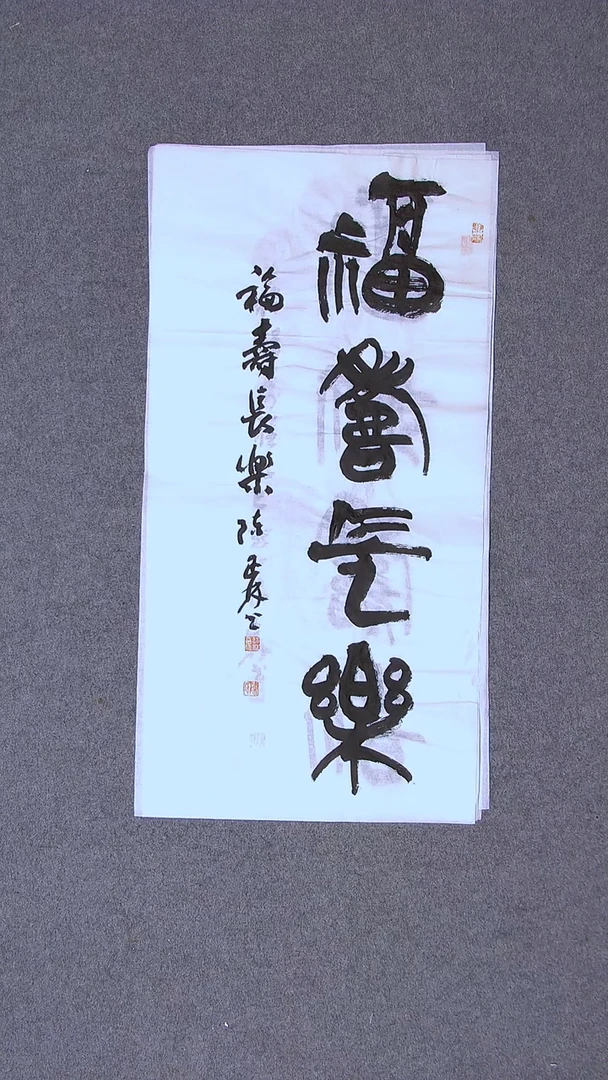 福壽長樂
福壽長樂陳